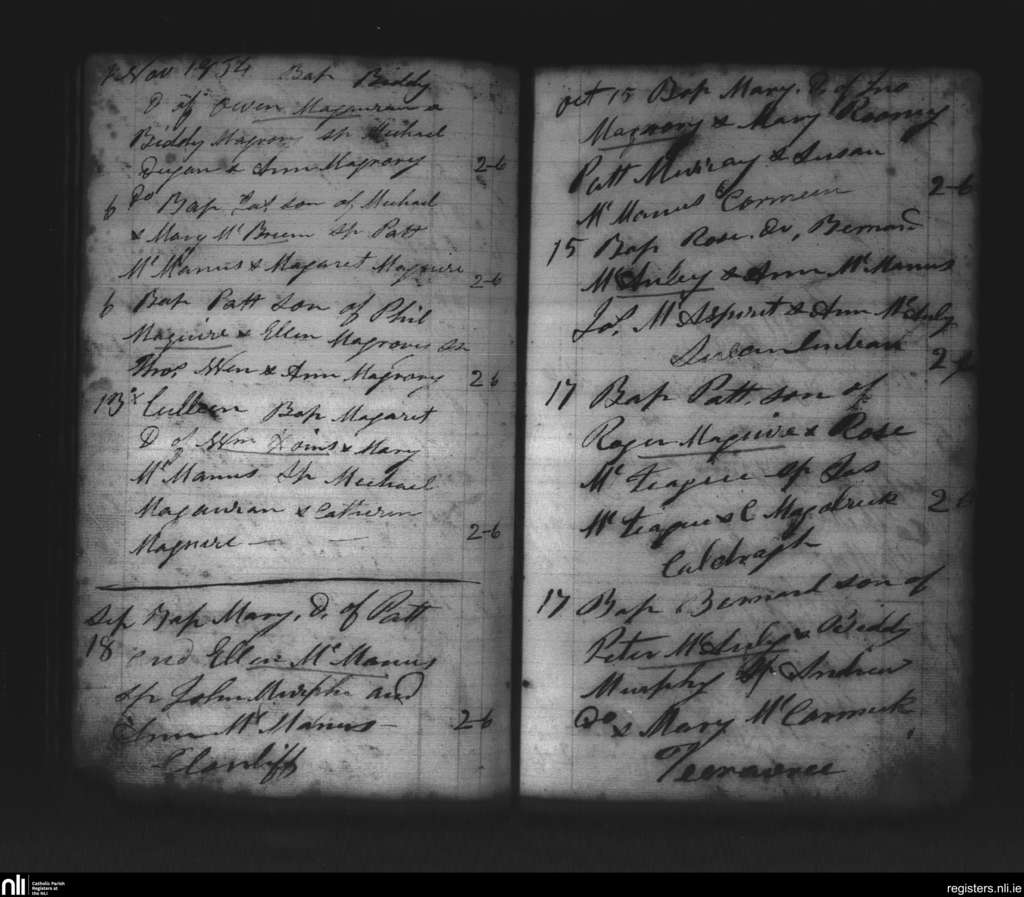 Nov 1854 Bap Biddy
D of Owen Magauran &
Biddy Magrory Sp Michael
Dugan & Ann Magrory 2-6
6 Do Bap son of Michael
& Mary Mc Brien Sp Patt
Mc Manus & Magaret Maguire 2-6
6 Bap Patt son of Phil
Maguire & Ellen Magrovie Sp
Thos & Ann Magrory 2 6
13 Culleen Bap Magaret
D of Wm & Mary
Mc Manus Sp Michael
Magauran & Catheren
Maguire — 2-6
Sep Bap Mary. D. of Patt
18 and Ellen Mc Manus
Sp John Murphy and
Ann Mc Manus — 2-6
Clontiff
Oct 15 Bap Mary. D. of Jno
Magrory & Mary Roony
Patt Murray & Susan
Mc Manus Cormeen 2-6
15 Bap Rose. do, Bernard
Mc Auley & Ann Mc Manus
Jos. Mc Aspirit & Ann Mc Auly
2-6
17 Bap Patt. son of
Roger Maguire & Rose
Mc Teague Sp Jas
Mc Teague & C Magolrick 2-6
Caldragh
17 Bap Bernard son of
Peter Mc Auly & Biddy
Murphy Sp Andrew
Do & Mary Mc Cormick
nli Catholic Parish
Registers at
the NLI
registers.nli.ie